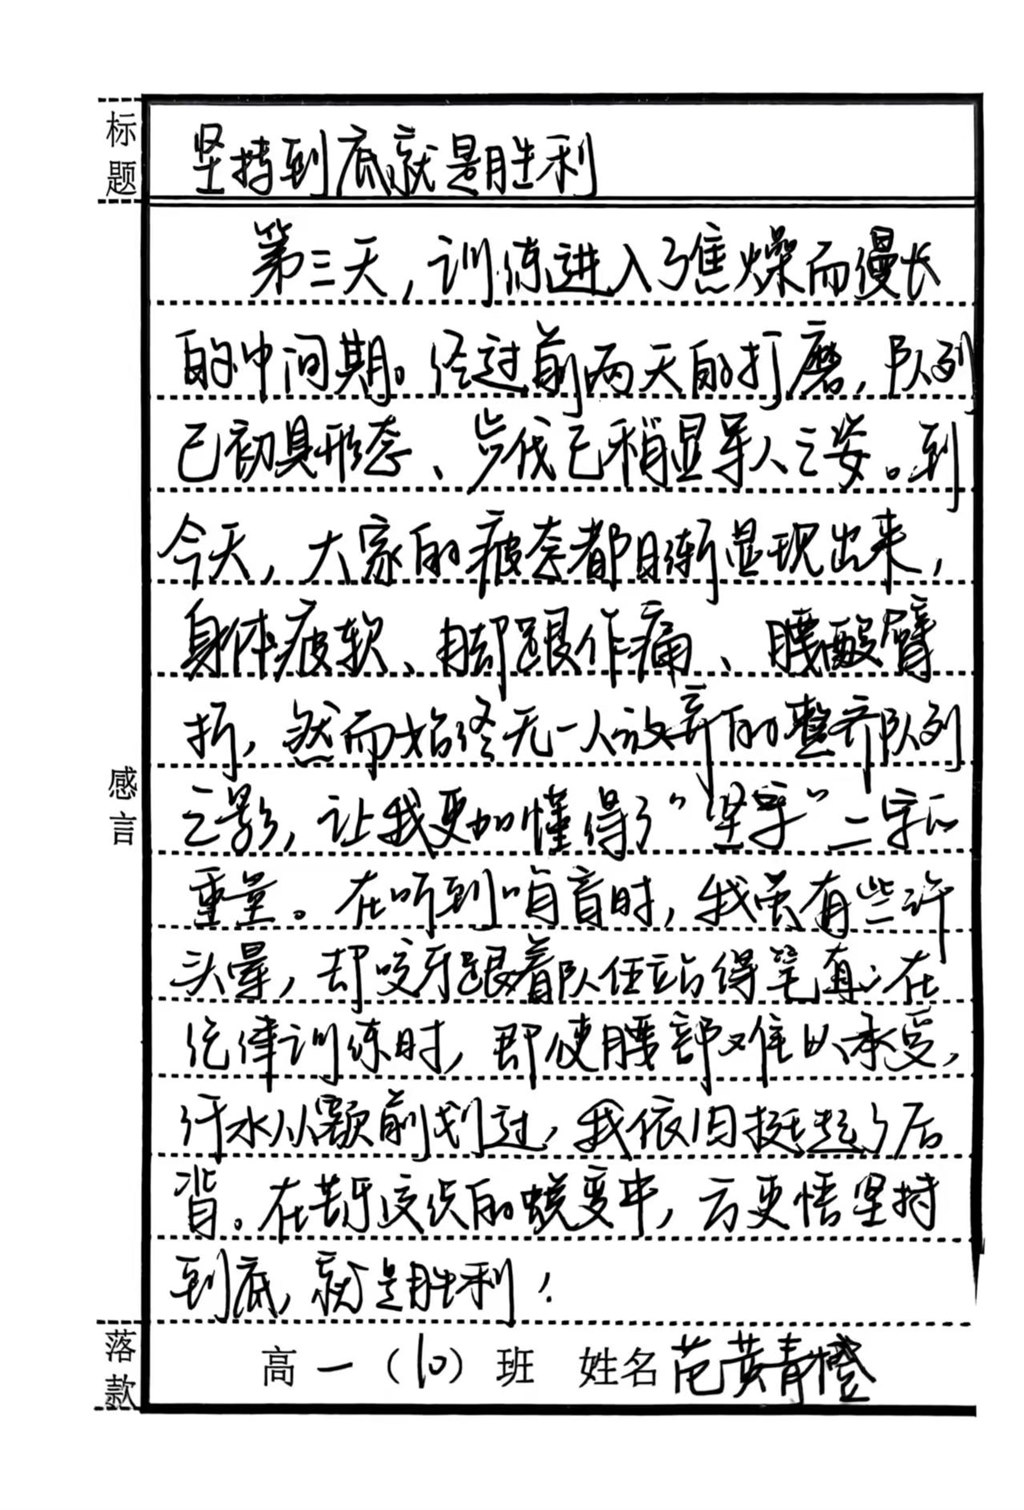 标题
坚持到底就是胜利
第三天，训练进入了焦燥而漫长
的中间期。经过前两天的打磨，队列
已初具形态、步伐已稍显军人之姿。到
今天，大家的疲奈都日渐显现出来，
身体疲软、脚跟作痛、腰酸臂
折，然而始终无一人放弃的整齐队列
之影，让我更加懂得了“坚守”二字的
重量。在听到哨音时，我虽有些许
头晕，却咬牙跟着队伍站得笔直；在
纪律训练时，即使腰部难以承受，
汗水从额前划过，我依旧挺起了后
背。在苦与疲的蜕变中，方更悟坚持
到底，就是胜利！
感言
落款
高一（10）班 姓名 范黄青橙